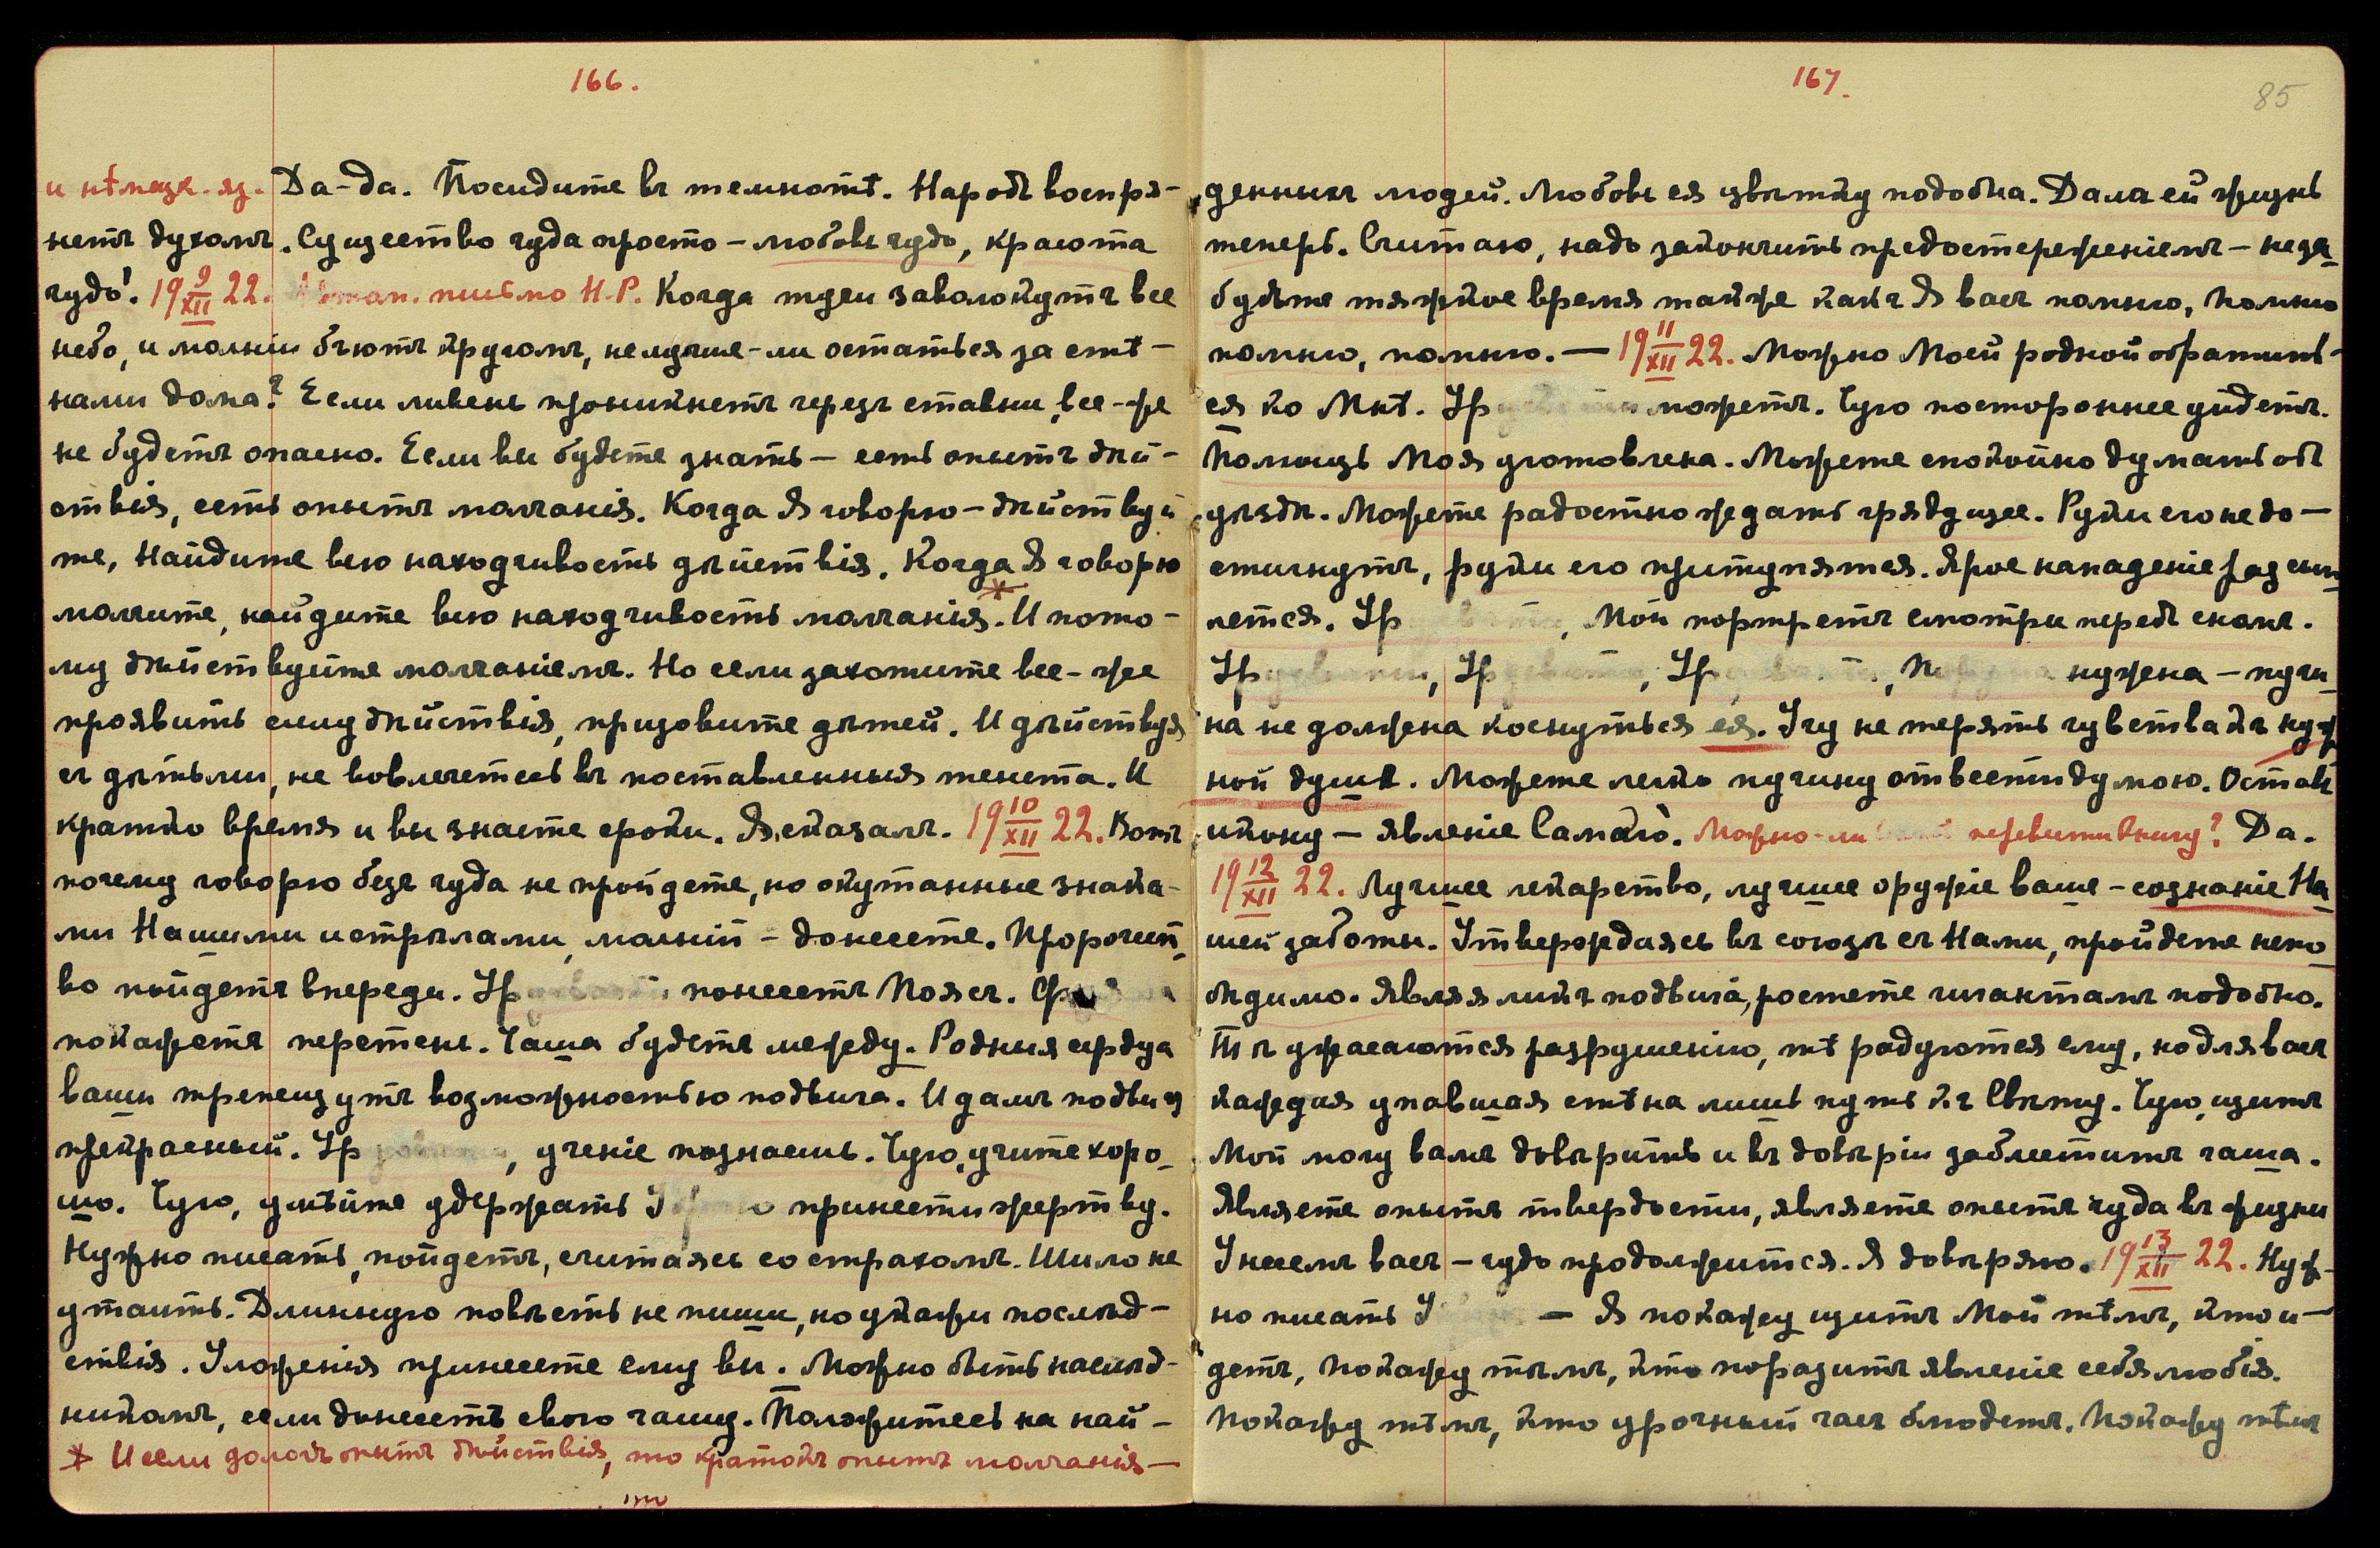 166.
и нѣмецк. яз. Да-да. Посидите въ темнотѣ. Народъ воспря-
нетъ духомъ. Существо чуда просто – любовь чудо, красота
чудо! 19 9/XII 22. Автом. письмо Н.Р. Когда тучи заволокутъ все
небо, и молніи бьютъ кругомъ, не лучше-ли остаться за стѣ-
нами дома? Если ливень проникнетъ черезъ ставни, все-же
не будетъ опасно. Если вы будете знать – есть опытъ дѣй-
ствія, есть опытъ молчанія. Когда Я говорю – дѣйствуй-
те, найдите всю находчивость дѣйствія. Когда Я говорю
молчите, найдите всю находчивость молчанія.* И пото-
му дѣйствуйте молчаніемъ. Но если захотите все-же
проявить силу дѣйствія, призовите дѣтей. И дѣйствуя
съ дѣтьми, не вовлечетесь въ поставленныя тенета. И
кратко время и вы знаете сроки. Я сказалъ. 19 10/XII 22. Вотъ
почему говорю безъ чуда не пройдете, но окутанные знака-
ми Нашими и стрѣлами молній – донесете. Пророчест-
во пойдетъ впереди. Ур понесетъ Поясъ.
покажетъ перстень. Чаша будетъ между. Родныя сердца
ваши трепещутъ возможностью подвига. И дамъ подвиг
прекрасный. Ур , ученіе познаешь. Чую, учите хоро-
шо. Чую, умѣйте удержать принести жертву.
Нужно писать, пойдетъ, считаясь со страхомъ. Шило не
утаить. Длинную повѣсть не пиши, но укажи послѣд-
ствія. Уложенія принесете ему вы. Можно быть наслѣд-
никомъ, если донесетъ свою чашу. Положитесь на най-
* И если дологъ опытъ дѣйствія, то кратокъ опытъ молчанія –
167.
85
денныхъ людей. Любовь ея цвѣтку подобна. Дала ей жизнь
теперь. Считаю, надо закончить предостереженіемъ – не за-
будьте тяжкое время также какъ Я васъ помню, помню
помню, помню. — 19 11/XII 22. Можно Моей родной обратить-
ся ко Мнѣ. Ур можетъ. Чую постороннее уйдетъ.
Помощь Моя уготовлена. Можете спокойно думать объ
удѣлѣ. Можете радостно ждать грядущее. Руки его не до-
стигнутъ, руки его притупятся. Ярое нападеніе разсып-
лется. Ур , Мой портретъ смотри передъ сномъ.
Ур , Ур , Ур , нужена – пучи-
на не должена коснуться ея. Учу не терять чувства къ нуж-
ной душѣ. Можете легко пучину отвести думою. Оставь
икону – явленіе Самого. Можно-ли перевити книгу? Да.
19 12/XII 22. Лучшее лекарство, лучшее оружіе ваше – сознаніе На-
шей заботы. Утверждаясь въ союзѣ съ Нами, пройдете непо-
бѣдимо. Являя ликъ подвига, ростете гигантамъ подобно.
Тѣ ужасаются разрушенію, тѣ радуются ему, но для васъ
каждая упавшая стѣна лишь путь къ Свѣту. Чую, щитъ
Мой могу вамъ довѣрить и въ довѣріи заблеститъ чаша.
Являете опытъ твердости, являете опытъ чуда въ жизни
Унесемъ васъ – чудо продолжится. Я довѣряю. 19 13/XII 22. Нуж-
но писать – Я покажу щитъ Мой тѣмъ, кто и-
детъ, покажу тѣмъ, кто поразитъ явленіе себялюбія.
Покажу тѣмъ, кто урочный часъ блюдетъ. Покажу тѣмъ